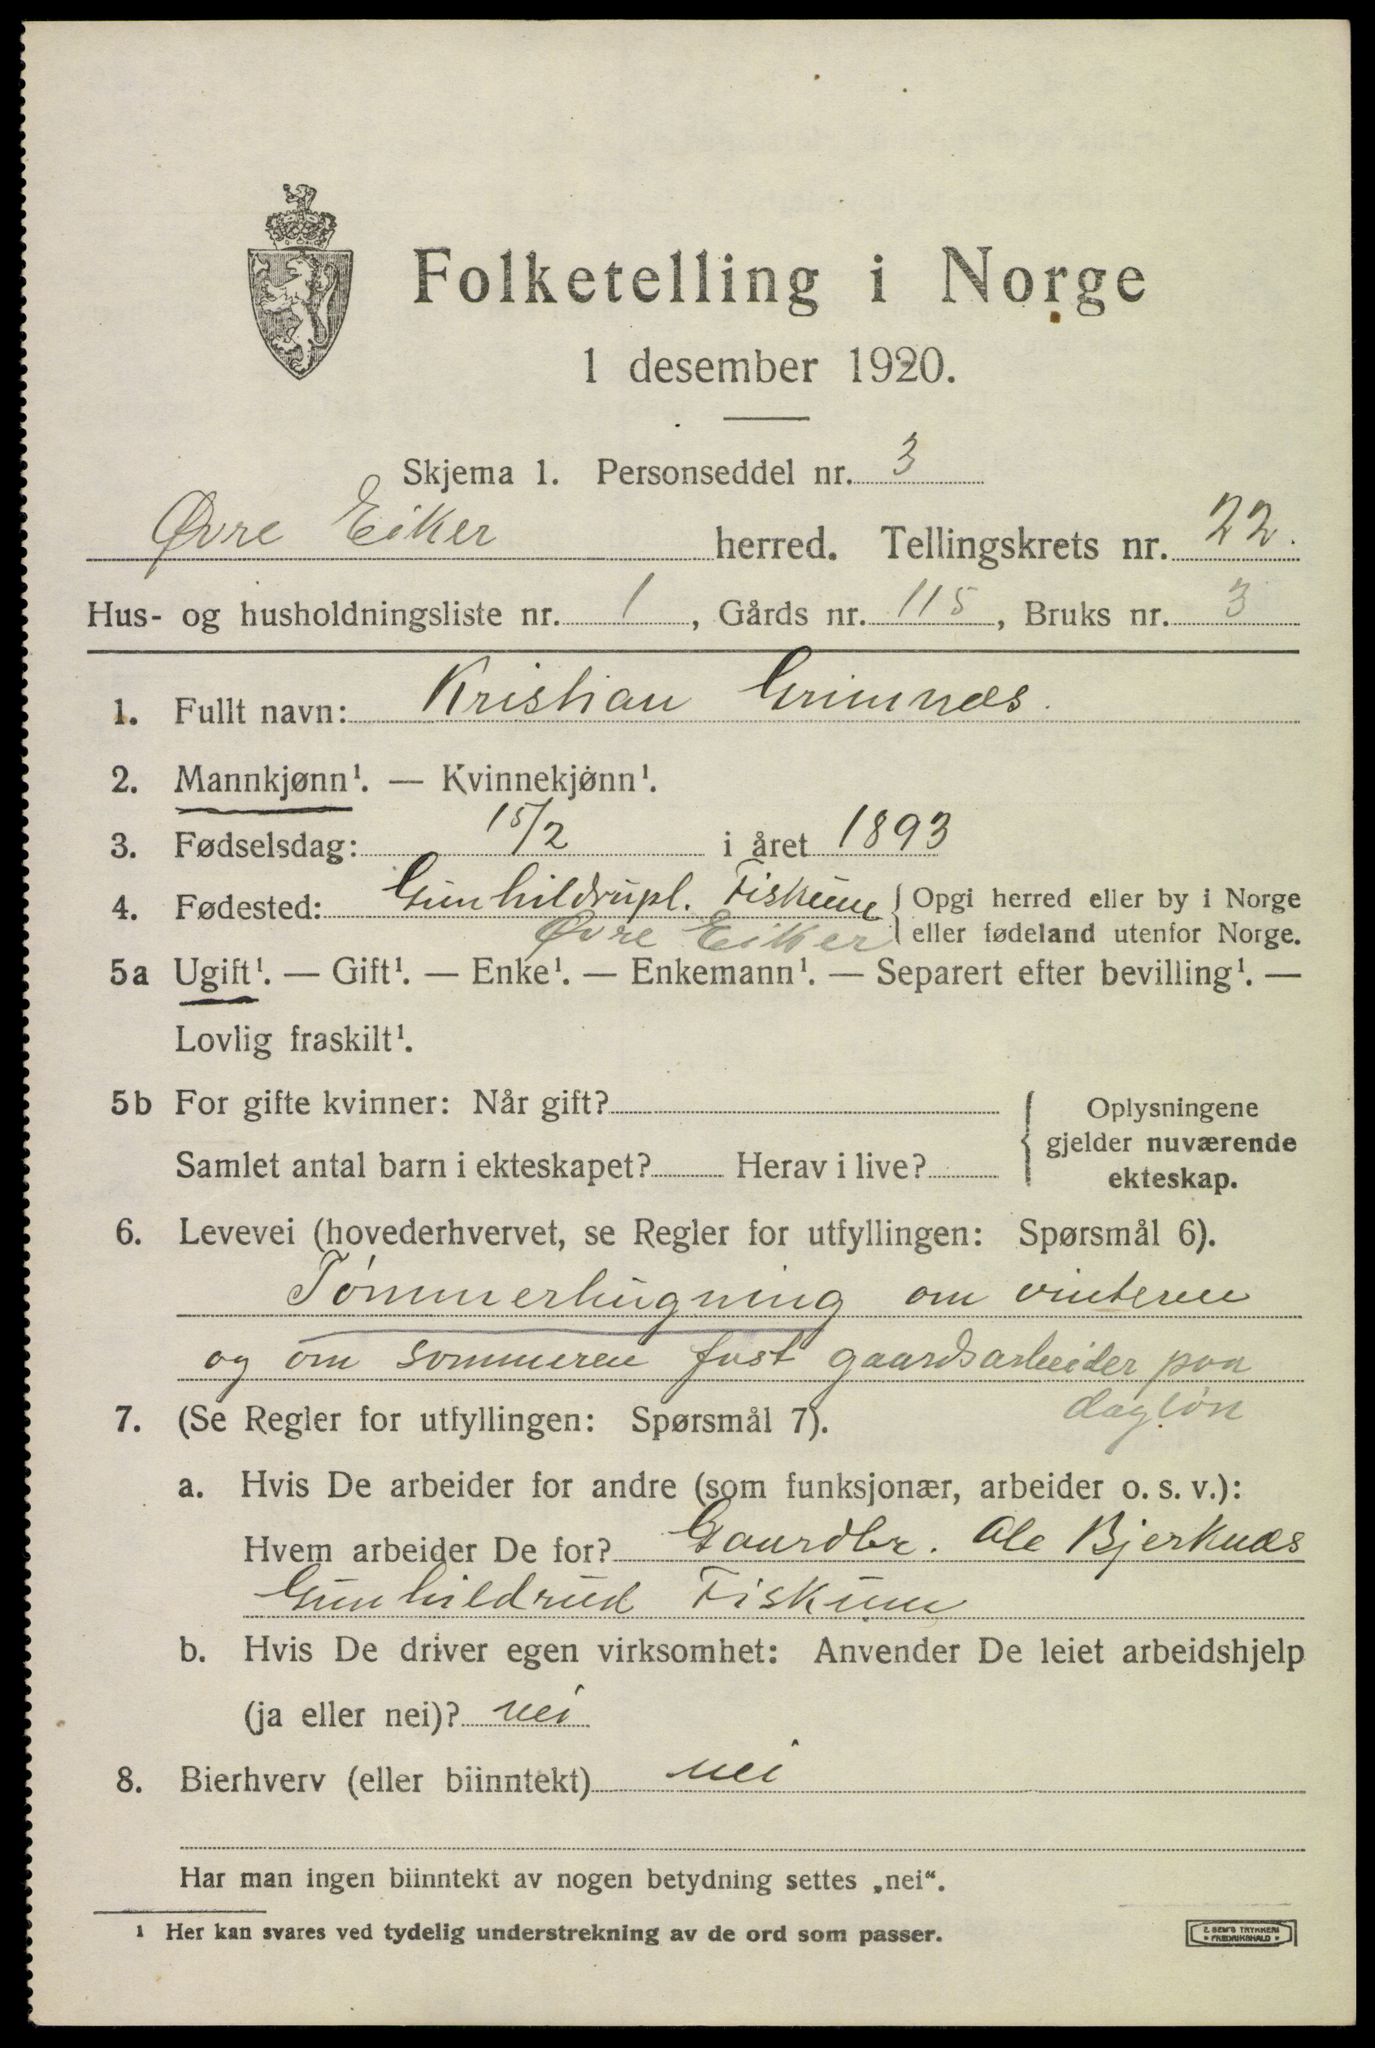 Folketelling i Norge
1 desember 1920.
Skjema 1. Personseddel nr. 3
Øvre Eiker herred. Tellingskrets nr. 22.
Hus- og husholdningsliste nr. 1, Gårds nr. 115, Bruks nr. 3
1. Fullt navn: Kristian Grimnæs.
2. Mannkjønn¹. — Kvinnekjønn¹.
3. Fødselsdag: 15/2 i året 1893
4. Fødested: Gunhildrupl. Fiskum { Opgi herred eller by i Norge
Øvre Eiker eller fødeland utenfor Norge.
5a Ugift¹. — Gift¹. — Enke¹. — Enkemann¹. — Separert efter bevilling¹. —
Lovlig fraskilt¹.
5b For gifte kvinner: Når gift?
Samlet antal barn i ekteskapet? Herav i live?
{ Oplysningene
gjelder nuværende
ekteskap.
6. Levevei (hovederhvervet, se Regler for utfyllingen: Spørsmål 6).
Tømmerhugning om vinteren
og om sommeren fast gaardsarbeider paa
dagløn
7. (Se Regler for utfyllingen: Spørsmål 7).
a. Hvis De arbeider for andre (som funksjonær, arbeider o. s. v.):
Hvem arbeider De for? Gaardbr. Ole Bjerknæs
Gunhildrud Fiskum
b. Hvis De driver egen virksomhet: Anvender De leiet arbeidshjelp
(ja eller nei)? nei
8. Bierhverv (eller biinntekt) nei
Har man ingen biinntekt av nogen betydning settes „nei“.
¹ Her kan svares ved tydelig understrekning av de ord som passer.
E. SEM'S TRYKKERI
* FREDRIKSHALD *